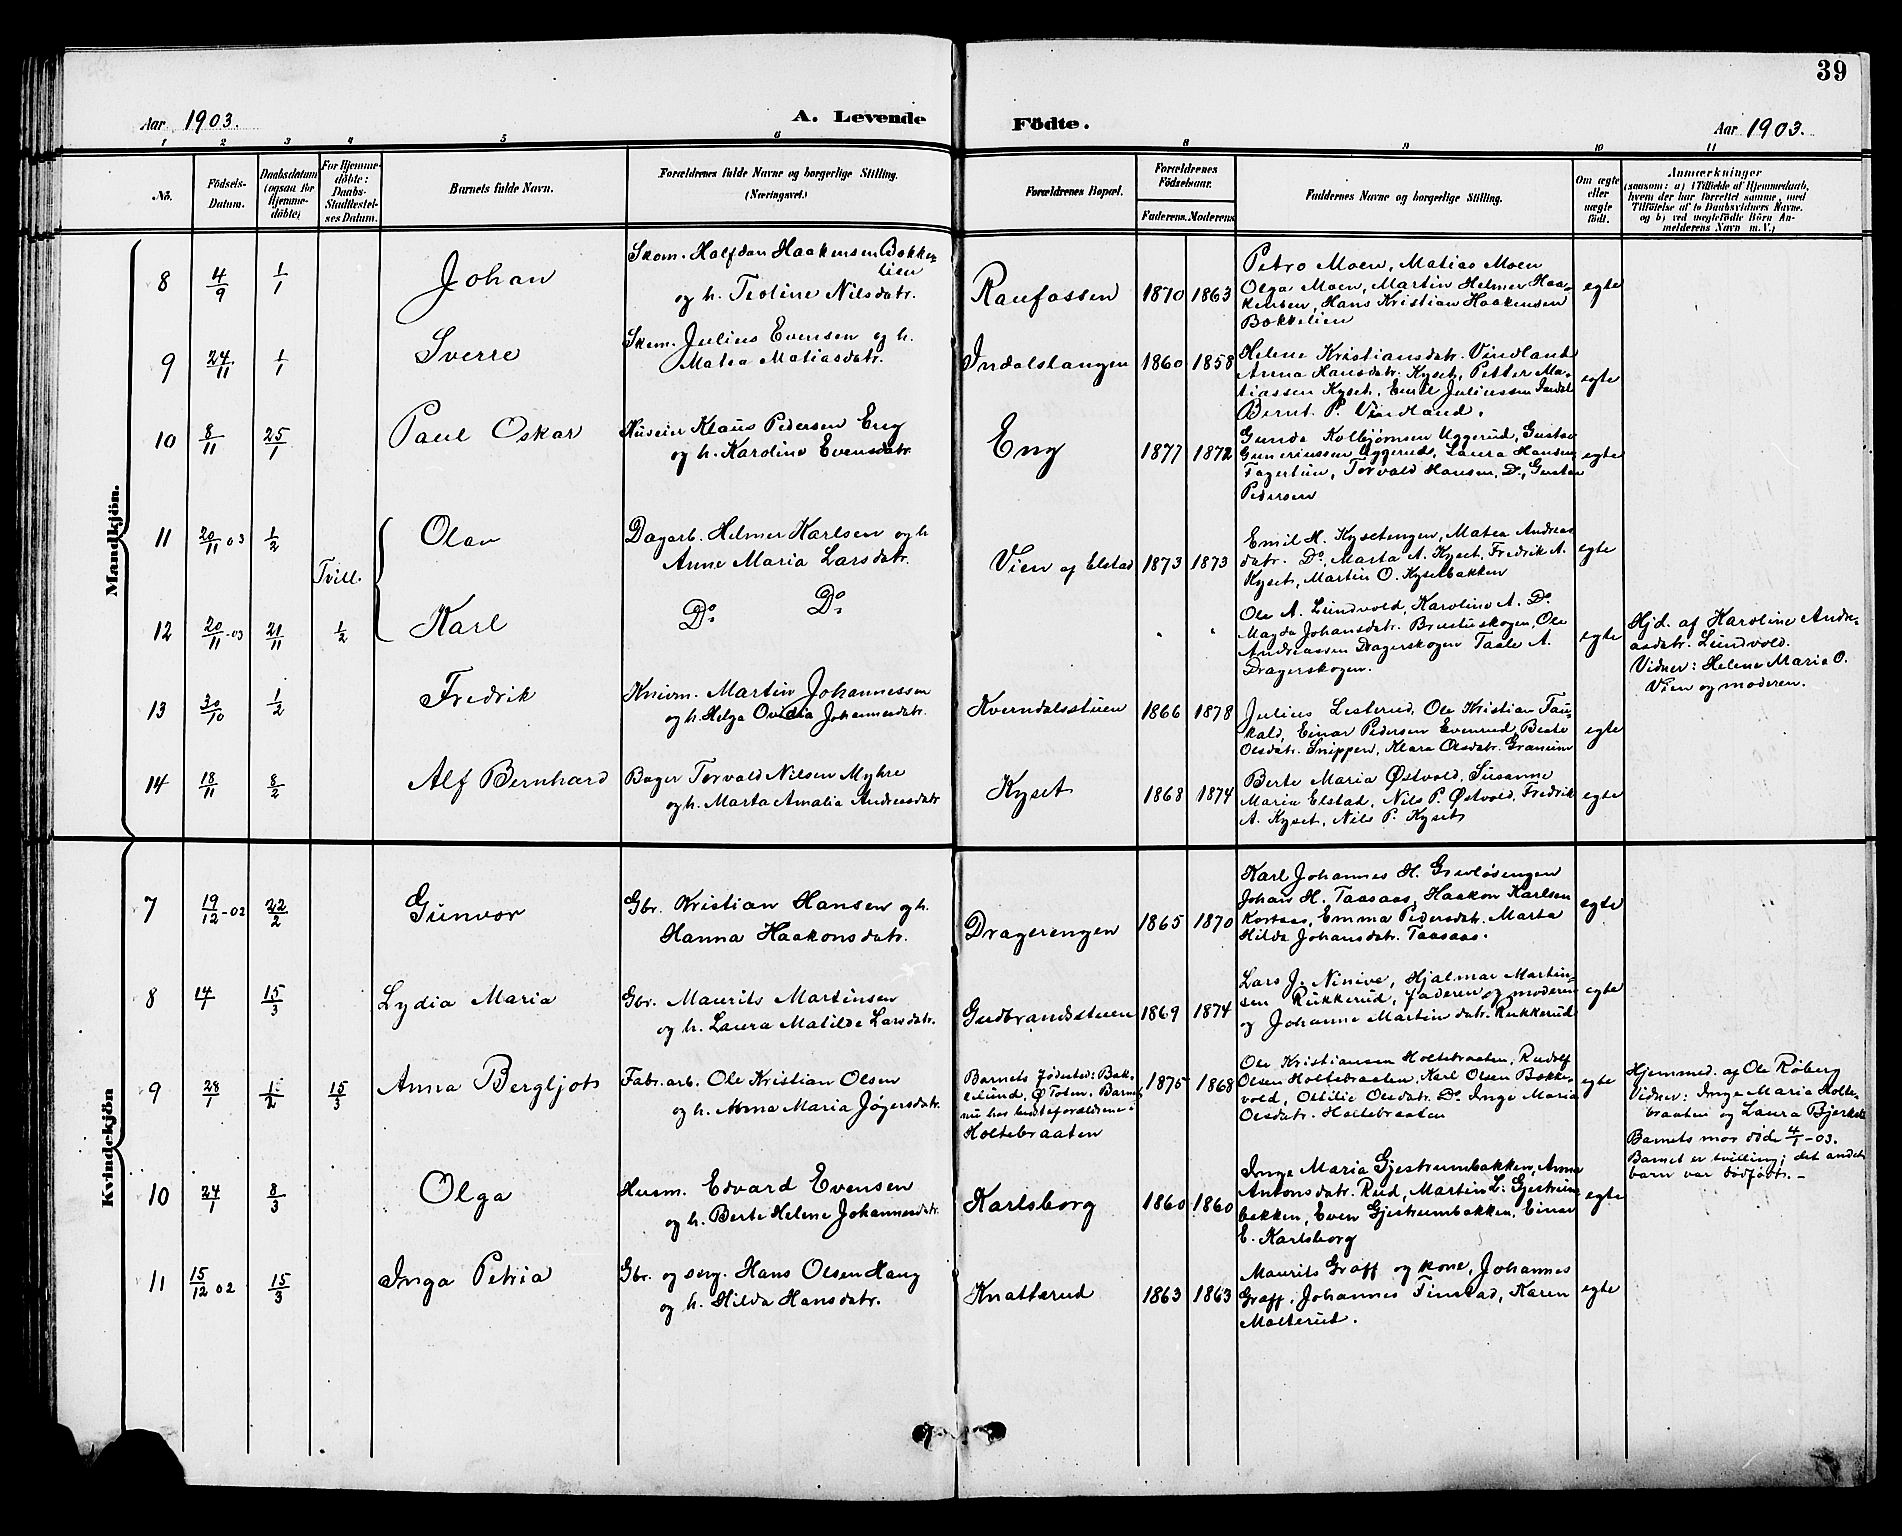 39
Aar 1903. A. Levende Födte. Aar 1903.
1 2 3 4 5 6 8 9 10 11
No. Födsels-Datum. Daabsdatum (ogsaa for Hjemmedöbte) For Hjemmedöbte: Daabs-Stadfæstelses Datum. Barnets fulde Navn. Forældrenes fulde Navne og borgerlige Stilling. (Næringsvei.) Forældrenes Bopæl. Forældrenes Födselsaar. Faderens. Moderens. Faddernes Navne og borgerlige Stilling. Om ægte eller uægte födt. Anmærkninger (saasom: a) i Tilfælde af Hjemmedaab, hvem der har forrettet samme, med Tilföielse af to Daabsvidners Navne, og b) ved uægtefödte Börn Anmelderens Navn m. V.)
Mandkjön.
8 4/9 1/1 Johan Skom. Halfdan Haakensen Bokkelien
og h. Teoline Nilsdatr. Raufossen 1870 1863
Petro Moen, Matias Moen
Olga Moen, Martin Helmer Haa-
kensen, Hans Kristian Haakensen
Bokkelien
egte
9 24/11 1/1 Sverre Skom. Julius Evensen og h.
Matea Matiasdatr. Indalstangen 1860 1858
Helene Kristiansdatr. Vindland
Anna Hansdatr. Kyset, Petter Ma-
tiassen Kyset, Emil Juliussen Indal
Bernt P. Vindland.
egte
10 8/11 25/1 Paul Oskar Huseier Klaus Pedersen Eng
og h. Karoline Evensdatr. Eng 1877 1872
Gunda Kolbjørnsen Uggerud, Gustav
Guneriussen Uggerud, Laura Hansen
Fagertun, Torvald Hansen, Do, Gustav
Pedersen
egte
11 20/11 03 1/2 Tvill. Olav Dagarb. Helmer Karlsen og h
Anne Maria Larsdatr. Vien af Elstad 1873 1873
Emil H. Kysetengen, Matea Andreas
datr. Do, Marta A. Kyset, Fredrik A.
Kyset, Martin O. Kysetbakken
egte
12 20/11-03 21/11 1/2 Karl Do Do " "
Ole A. Lundvold, Karoline A. Do
Magda Johansdatr. Ole
Andreassen Dragerskogen Taale A.
Dragerskogen.
egte
Hjd. af Karoline Andre-
asdatr. Lundvold.
Vidner: Helene Maria O.
Vien og moderen.
13 30/10 1/2 Fredrik Knivm. Martin Johannessen
og h. Helga Ovidia Johannesdatr. Kverndalsstuen 1866 1878
Julius Lesterud, Ole Kristian Tau-
kald, Einar Pedersen Evenrud, Beate
Olsdatr. Snippen, Klara Olsdatr. Granum
egte
14 18/11 8/2 Alf Bernhard Bager Torvald Nilsen Myhre
og h. Marta Amalia Andreasdatr Kyset 1868 1874
Berte Maria Østvold, Susanne
Maria Elstad, Nils P. Østvold, Fredrik
A. Kyset, Nils P. Kyset
egte
Kvindekjön
7 19/12-02 22/2 Gunvor Gbr. Kristian Hansen og h.
Hanna Haakonsdatr. Dragerengen 1865 1870
Karl Johannes H.
Johans H. Taasaas, Haakon Karlsen
Kortaas, Emma Pedersdatr. Marta
Hilda Johansdatr. Taasaas.
egte
8 14/1 15/3 Lydia Maria Gbr. Maurits Martinsen
og h. Laura Matilde Larsdatr. Gudbrandsstuen 1869 1874
Lars J. Ninive, Hjalmar Martin-
sen Rukkerud, faderen og moderen
og Johanne Martindatr. Rukkerud
egte
9 28/1 1/2 15/3 Anna Bergljot Fabr. arb. Ole Kristian Olsen
og h. Anna Maria Jøgersdatr.
Barnets fødested: Bak-
kelund, Ø Toten, Barnet
nu hos bedsteforældrene:
Holtebraaten
1875 1868
Ole Kristiansen Holtebraaten, Rudolf
Olsen Holtebraaten, Karl Olsen Bokke-
vold, Otilie Olsdatr. Do Inga Maria
Olsdatr. Holtebraaten
egte
Hjemmed. af Ole Røberg
Vidner: Inga Maria Holte-
braaten og Laura
Barnets mor døde 4/1-03.
Barnet er tvilling; det andet
barn var dødfødt.-
10 24/1 8/3 Olga Husm. Edvard Evensen
og h. Berte Helene Johannesdatr. Karlsborg 1860 1860
Inge Maria Gjestrumbakken, Anna
Antonsdatr. Rud, Martin L. Gjestrum
bakken, Even Gjestrumbakken, Einar
E. Karlsborg
egte
11 15/12 02 15/3 Inga Petria Gbr. og serg. Hans Olsen Haug
og h. Hilda Hansdatr. Knatterud 1863 1863
Maurits Graff og kone, Johannes
Graff, Johannes Tinstad, Karen
Molterud.
egte